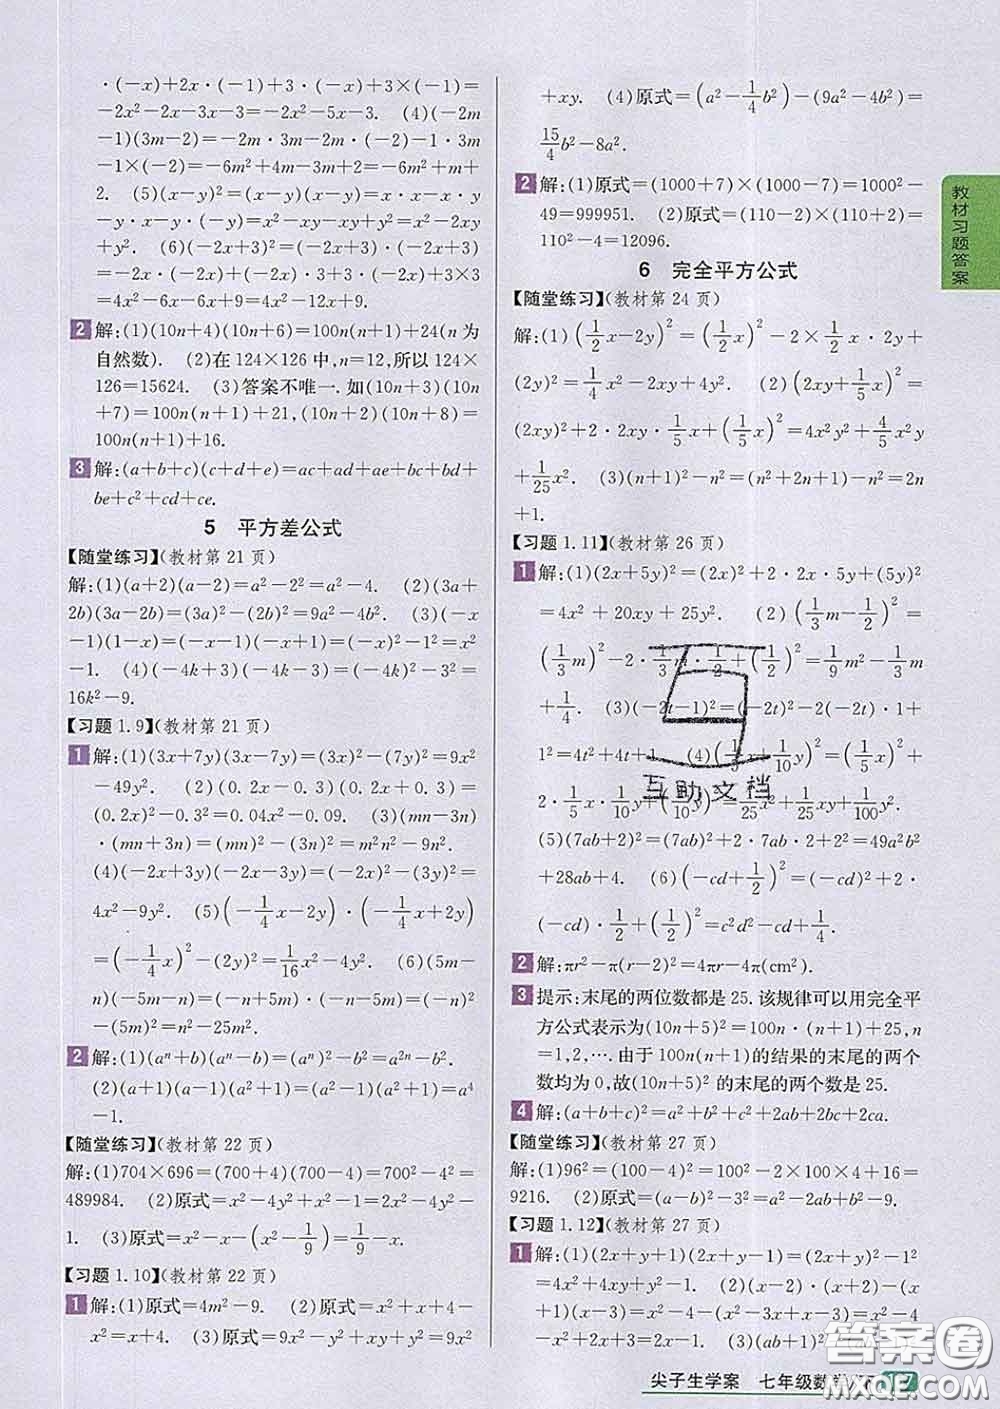 ·(-x)+2x·(-1)+3·(-x)+3×(-1)=
-2x²-2x-3x-3=-2x²-5x-3. (4)(-2m
-1)(3m-2)=-2m·3m-2m·(-2)-1·3m
-1×(-2)=-6m²+4m-3m+2=-6m²+m+
2. (5)(x-y)²=(x-y)(x-y)=x·x-x·y
-y·x-y·(-y)=x²-xy-xy+y²=x²-2xy
+y². (6)(-2x+3)²=(-2x+3)(-2x+3)
=-2x·(-2x)-2x·3+3·(-2x)+3×3
=4x²-6x-6x+9=4x²-12x+9.
2 解:(1)(10n+4)(10n+6)=100n(n+1)+24(n 为
自然数). (2)在 124×126 中,n=12,所以 124×
126=15624. (3)答案不唯一.如(10n+3)(10n
+7)=100n(n+1)+21,(10n+2)(10n+8)=
100n(n+1)+16.
3 解:(a+b+c)(c+d+e)=ac+ad+ae+bc+bd+
be+c²+cd+ce.
5 平方差公式
【随堂练习】(教材第 21 页)
解:(1)(a+2)(a-2)=a²-2²=a²-4. (2)(3a+
2b)(3a-2b)=(3a)²-(2b)²=9a²-4b². (3)(-x
-1)(1-x)=(-x-1)(-x+1)=(-x)²-1²=x²
-1. (4)(-4k+3)(-4k-3)=(-4k)²-3²=
16k²-9.
【习题 1.9】(教材第 21 页)
1 解:(1)(3x+7y)(3x-7y)=(3x)²-(7y)²=9x²
-49y². (2)(0.2x-0.3)(0.2x+0.3)=
(0.2x)²-0.3²=0.04x²-0.09. (3)(mn-3n)
·(mn+3n)=(mn)²-(3n)²=m²n²-9n².
(4)(-2x+3y)(-2x-3y)=(-2x)²-(3y)²=
4x²-9y². (5)(-1/4x-2y)·(-1/4x+2y)
=(-1/4x)²-(2y)²=1/16x²-4y². (6)(5m-
n)(-5m-n)=(-n+5m)(-n-5m)=(-n)²
-(5m)²=n²-25m².
2 解:(1)(aⁿ+b)(aⁿ-b)=(aⁿ)²-b²=a²ⁿ-b².
(2)(a+1)(a-1)(a²+1)=(a²-1)(a²+1)=a⁴
-1.
【随堂练习】(教材第 22 页)
解:(1)704×696=(700+4)(700-4)=700²-4²=
489984. (2)原式=x²-4y²+x²-1=2x²-4y²-
1. (3)原式=x²-x-(x²-1/9)=1/9-x.
【习题 1.10】(教材第 22 页)
1 解:(1)原式=4m²-9. (2)原式=x²+x+4-
x²=x+4. (3)原式=9x²-y²+xy+y²=9x²
+xy. (4)原式=(a²-1/4b²)-(9a²-4b²)=
15/4b²-8a².
2 解:(1)原式=(1000+7)×(1000-7)=1000²-
49=999951. (2)原式=(110-2)×(110+2)=
110²-4=12096.
6 完全平方公式
【随堂练习】(教材第 24 页)
解:(1)(1/2x-2y)²=(1/2x)²-2×1/2x·2y+
(2y)²=1/4x²-2xy+4y². (2)(2xy+1/5x)²=
(2xy)²+2·2xy·1/5x+(1/5x)²=4x²y²+4/5x²y
+1/25x². (3)(n+1)²-n²=(n²+2n+1)-n²=2n
+1.
【习题 1.11】(教材第 26 页)
1 解:(1)(2x+5y)²=(2x)²+2·2x·5y+(5y)²
=4x²+20xy+25y². (2)(1/3m-1/2)²=
(1/3m)²-2·1/3m·1/2+(1/2)²=1/9m²-1/3m
+1/4. (3)(-2t-1)²=(-2t)²-2(-2t)·1+
1²=4t²+4t+1. (4)(1/5x+1/10y)²=(1/5x)²+
2·1/5x·1/10y+(1/10y)²=1/25x²+1/25xy+1/100y².
(5)(7ab+2)²=(7ab)²+2·7ab·2+2²=49a²b²
+28ab+4. (6)(-cd+1/2)²=(-cd)²+2·
(-cd)·1/2+(1/2)²=c²d²-cd+1/4.
2 解:πr²-π(r-2)²=4πr-4π(cm²).
3 提示:末尾的两位数都是 25.该规律可以用完全平
方公式表示为(10n+5)²=100n·(n+1)+25,n
=1,2,….由于 100n(n+1)的结果的末尾的两个
数均为 0,故(10n+5)² 的末尾的两个数是 25.
4 解:(a+b+c)²=a²+b²+c²+2ab+2bc+2ca.
【随堂练习】(教材第 27 页)
解:(1)96²=(100-4)²=100²-2×100×4+16=
9216. (2)原式=(a-b)²-3²=a²-2ab+b²-9.
【习题 1.12】(教材第 27 页)
1 解:(1)(2x+y+1)(2x+y-1)=(2x+y)²-1²
=4x²+4xy+y²-1. (2)(x-2)(x+2)-(x
+1)(x-3)=x²-4-(x²-2x-3)=x²-4
-x²+2x+3=2x-1. (3)(ab+1)²-
教材习题答案
互助文档
尖子生学案 七年级数学
答案圈
MXQE.COM